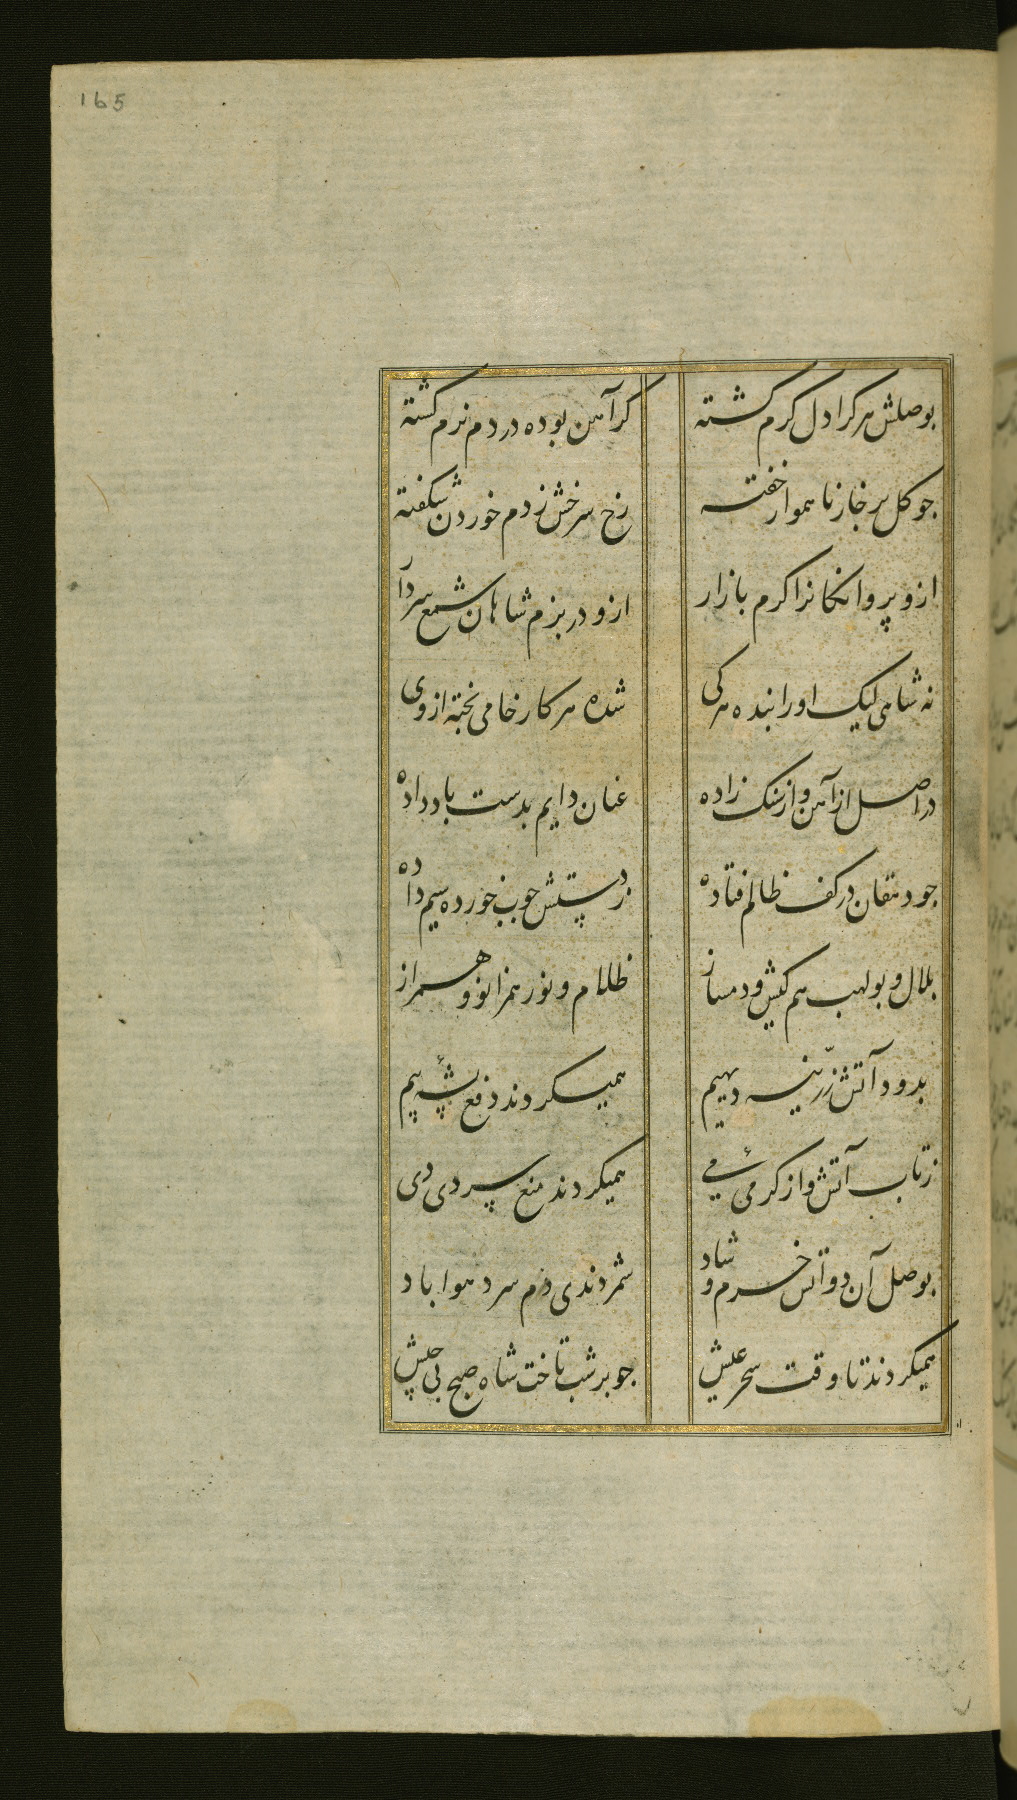 165
بوصلش هر کرا دل کرم کشته
کر آهن بوده در دم نرم کشته
جو کل بر خار ناهموار خفته
رخ سرخش زدم خوردن شکفته
ازو پروانکانرا کرم بازار
ازو در بزم شاهان شمع سردار
نه شاهی لیک اورا بنده هر کی
شده هر کار خامی پخته از وی
در اصل از آهن و از سنک زاده
عنان دایم بدست باد داده
جو دهقان در کف ظالم فتاده
ز دستش جوب خورده سیم داده
بلال و بولهب هم کیش و دمساز
ظلام و نور همزانو و همراز
بدود آتش زرینه دیهیم
همیکردند دفع پشه بیم
ز تاب آتش و از کرمئ می
همیکردند منع سردی دی
بوصل آن دو آتش خرم و شاد
شمردندی دم سرد هوا باد
همیکردند تا وقت سحر عیش
جو بر شب تاخت شاه صبح بی جیش